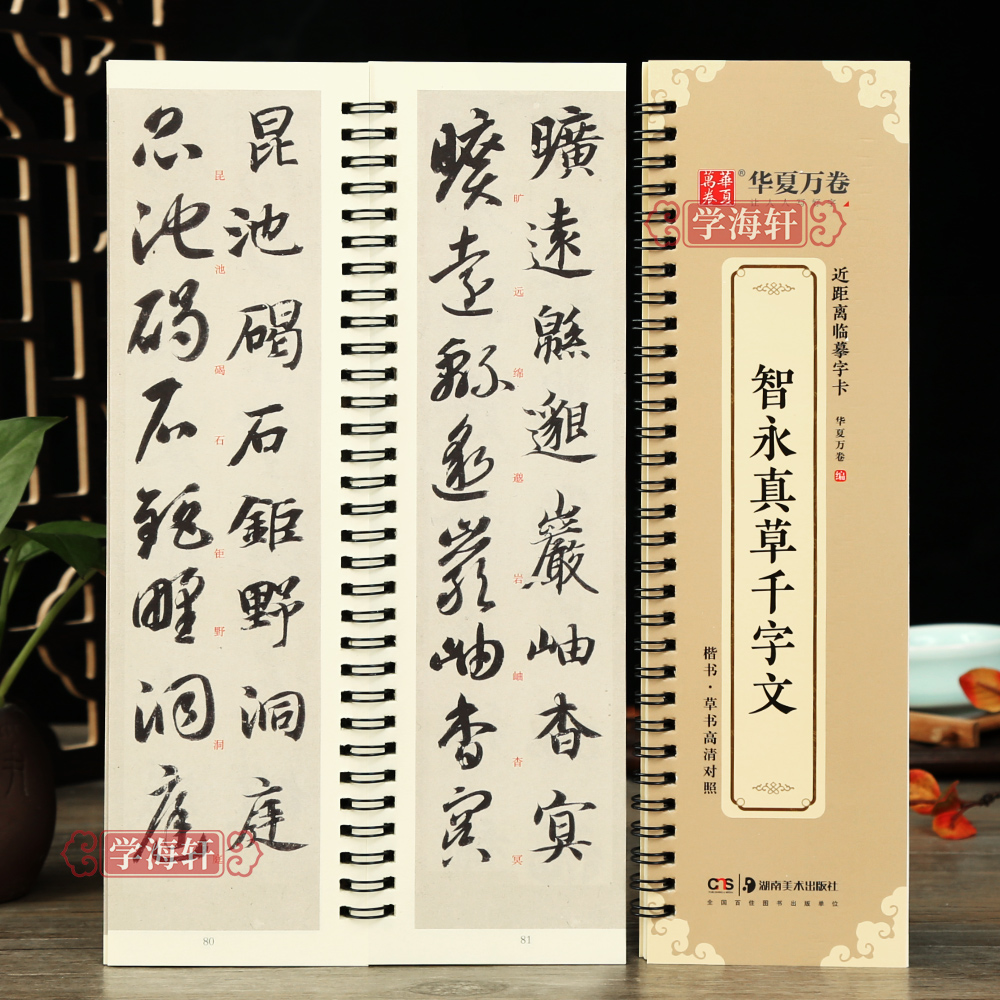 昆池碣石鉅野洞庭
昆池碣石钜野洞庭
昆池碣石鉅野洞庭
80
曠遠緜邈巖岫杳冥
旷远绵邈岩岫杳冥
曠遠緜邈巖岫杳冥
81
華夏萬卷
®华夏万卷
学海轩
近距离临摹字卡
华夏万卷 编
智永真草千字文
楷书·草书高清对照
湖南美术出版社
全国百佳图书出版单位
学海轩